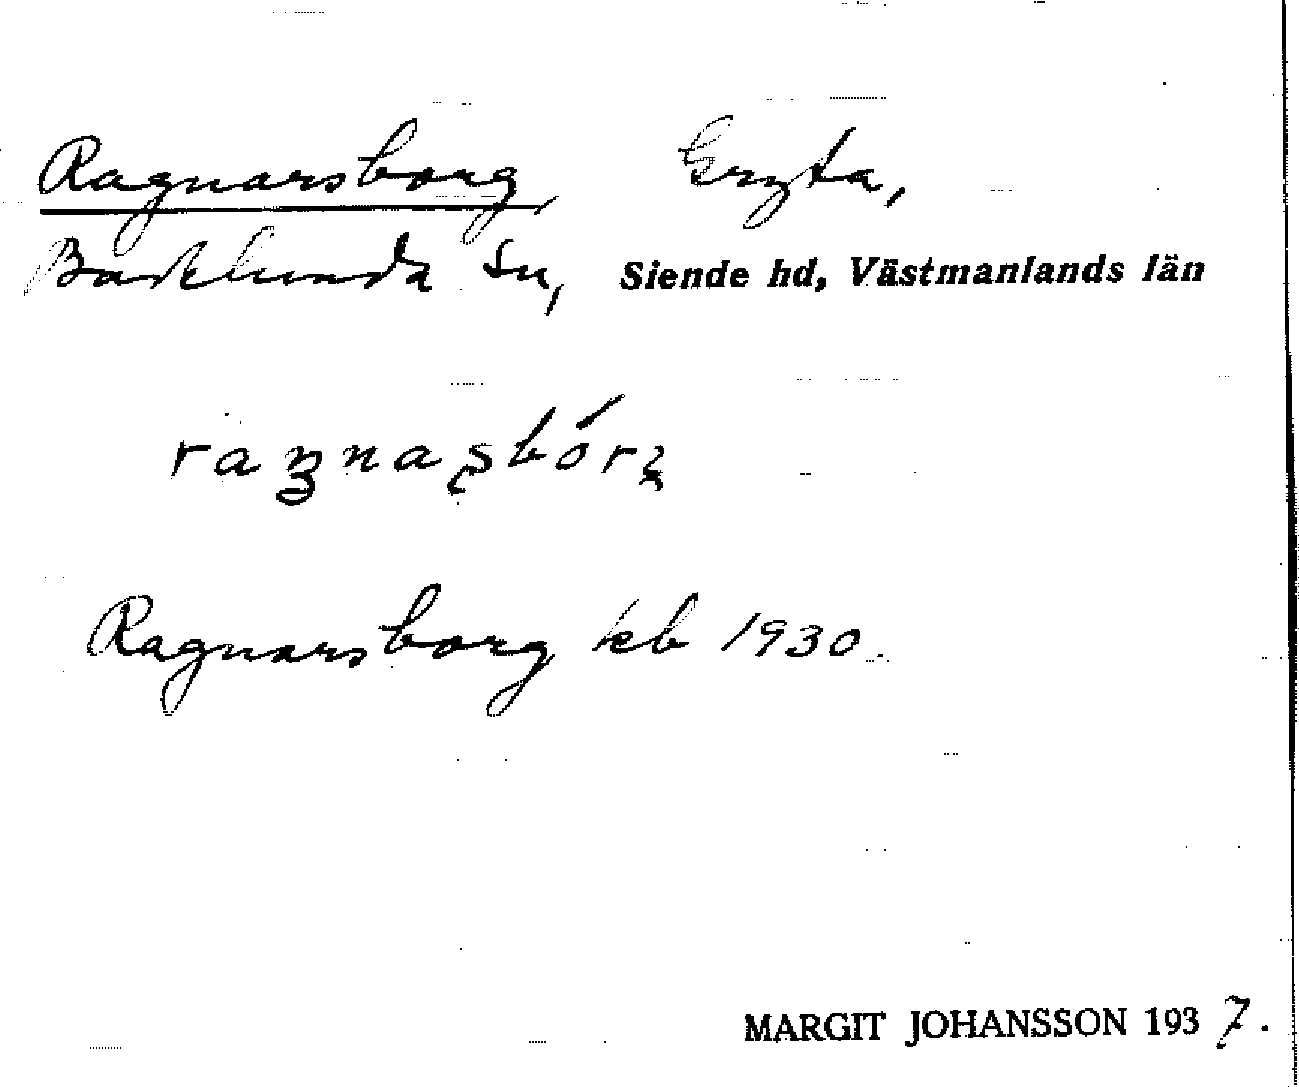 Ragnarsborg, Gryta,
Badelunda sn, Siende hd, Västmanlands län
raʒnaʂbórʒ
Ragnarsborg kb 1930.
MARGIT JOHANSSON 1937.